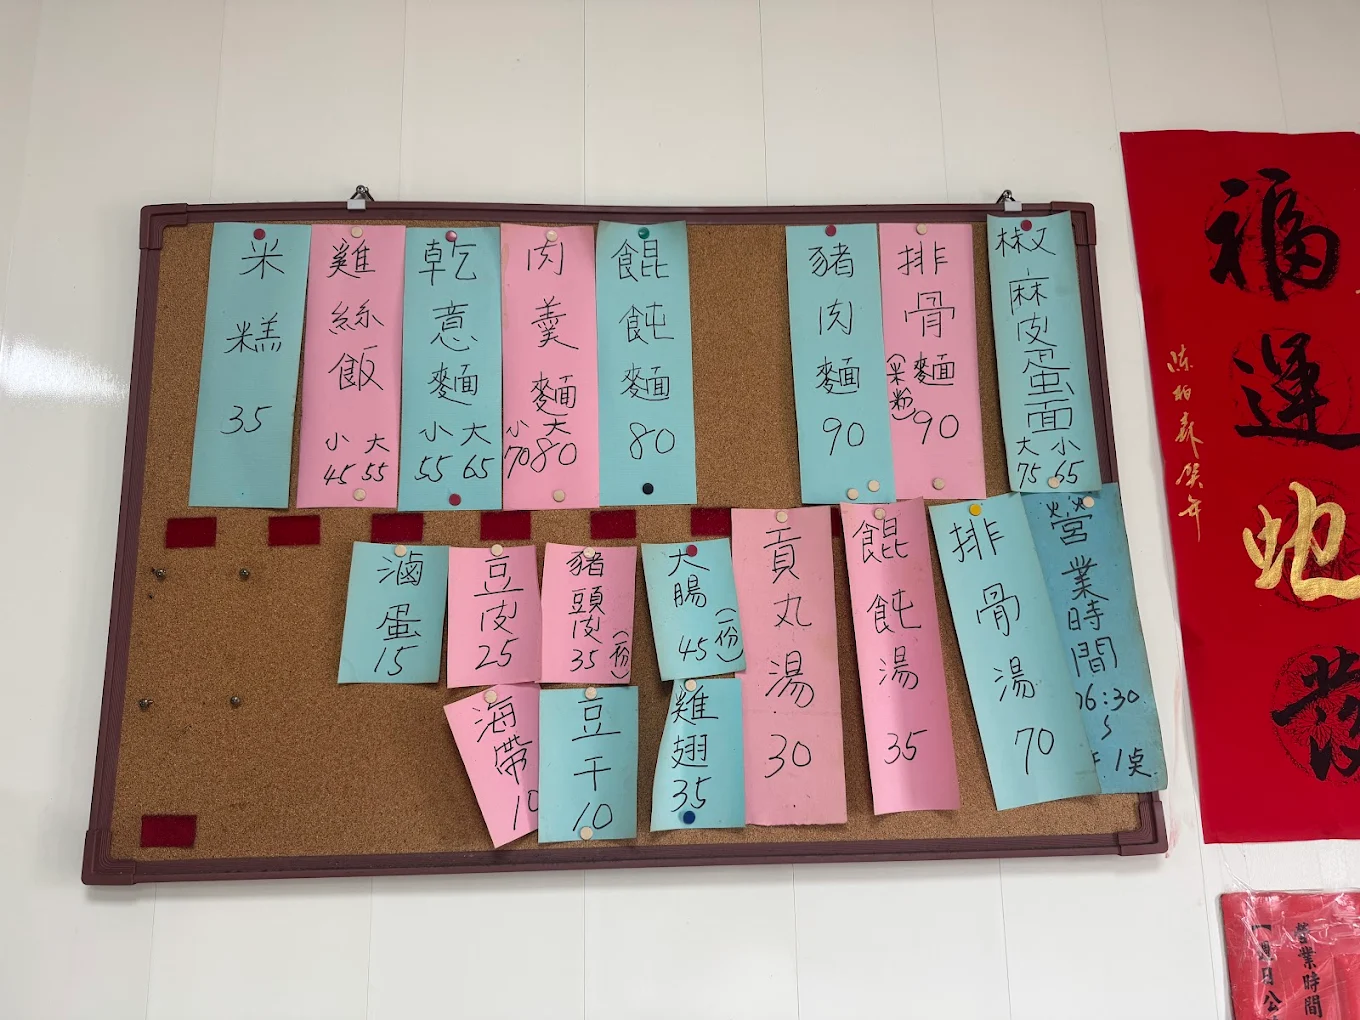 椒麻皮蛋面
大75 小65
排骨麵
(米粉)
90
豬肉麵
90
餛飩麵
80
肉羹麵
大80
小70
乾意麵
大65
小55
雞絲飯
大55
小45
米糕
35
營業時間
06:30
~
1点
排骨湯
70
餛飩湯
35
貢丸湯
30
大腸
(一份)
45
豬頭皮
(一份)
35
豆皮
25
滷蛋
15
雞翅
35
豆干
10
海帶
10
福運地發
年
營業時間